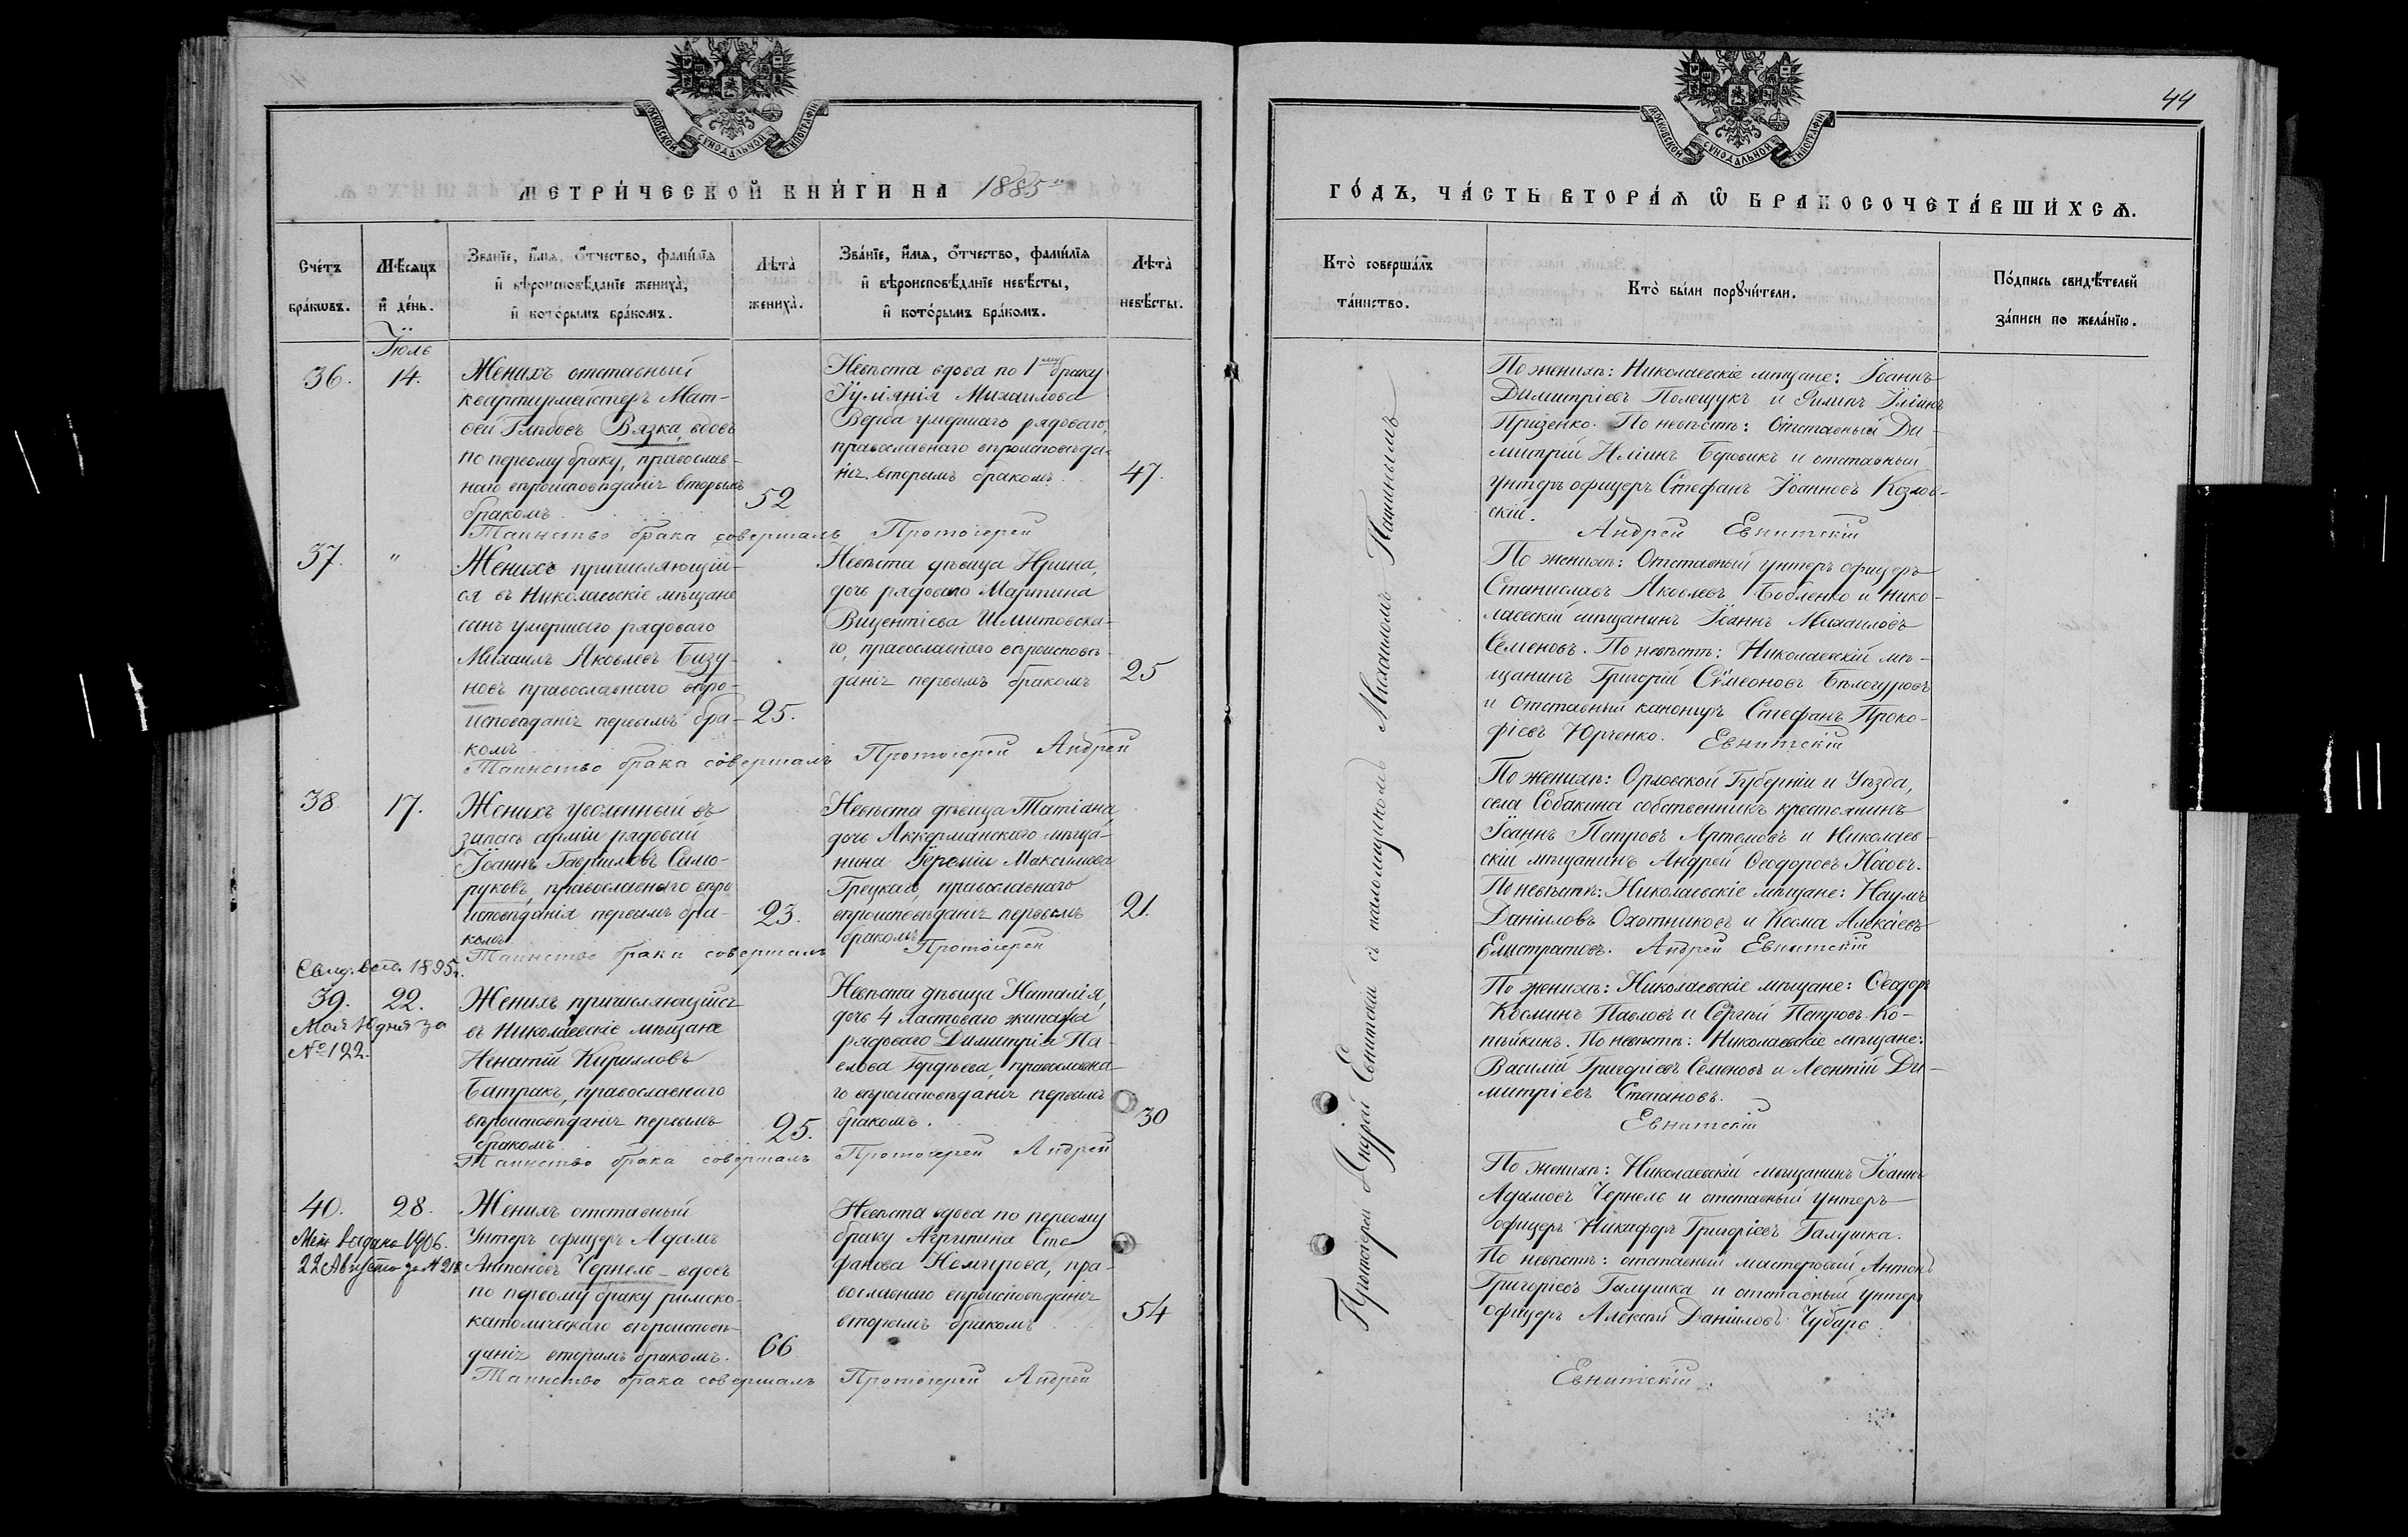 44
МОСКОВСКОЙ СУНОДАЛЬНОЙ ТИПОГРАФІИ
МЕТРИ́ЧЕСКОЙ КНИ́ГИ НА 1885
Сче́тъ бра́кѡвъ.
Мѣ́сяцъ и҆ де́нь.
Зва́нїе, и҆́мѧ, ѻ҆́тчество, фами́лїѧ
и҆ вѣроисповѣ́данїе жениха̀,
и҆ кото́рымъ бра́комъ.
Лѣта̀ жениха̀.
Зва́нїе, и҆́мѧ, ѻ҆́тчество, фами́лїѧ
и҆ вѣроисповѣ́данїе невѣ́сты,
и҆ кото́рымъ бра́комъ.
Лѣта̀ невѣ́сты.
Іюль
36.
14.
Женихъ отставный
квартирмейстеръ Мат-
ѳей Глѣбовъ Вязка, вдовъ
по первому браку, православ-
наго вѣроисповѣданія вторымъ
бракомъ.
52
Невѣста вдова по 1му браку
Іуліанія Михаилова
Верба умершаго рядоваго,
православнаго вѣроисповѣда-
нія вторымъ бракомъ
47.
Таинство брака совершалъ Протоіерей
37.
"
Женихъ причисляющій-
ся въ Николаевскіе мѣщане
сынъ умершаго рядоваго
Михаилъ Яковлевъ Бизу-
новъ православнаго вѣро-
исповѣданія первымъ бра-
комъ
25.
Невѣста дѣвица Ирина,
дочь рядоваго Мартина
Викентіева Шмитовска-
го, православнаго вѣроисповѣ-
данія первымъ бракомъ
25
Таинство брака совершалъ Протоіерей Андрей
38.
17.
Женихъ уволенный въ
запасъ арміи рядовой
Іоаннъ Гавріиловъ Само-
руковъ, православнаго вѣро
исповѣданія первымъ бра-
комъ
23.
Невѣста дѣвица Татіана,
дочь Аккерманскаго мѣща-
нина Іереміи Максимова
Грецкаго, православнаго
вѣроисповѣданія первымъ
бракомъ
21.
Таинство брака совершалъ Протоіерей
Свид. выд. 1895г.
39.
22.
Мая 10 дня за
№ 122.
Женихъ причисляющійся
въ Николаевскіе мѣщане
Игнатій Кирилловъ
Батракъ, православнаго
вѣроисповѣданія первымъ
бракомъ.
25.
Невѣста дѣвица Наталія,
дочь 4 ластоваго экипажа
рядоваго Димитрія Па-
влова Гордѣева, православна-
го вѣроисповѣданія первымъ
бракомъ.
30
Таинство брака совершалъ Протоіерей Андрей
40.
28.
Мет выдана 1906.
22 Августа за № 218
Женихъ отставный
Унтеръ офицеръ Адамъ
Антоновъ Чернель - вдовъ
по первому браку римско-
католическаго вѣроисповѣ-
данія вторымъ бракомъ.
66
Невѣста вдова по первому
браку Агрипина Сте
фанова Немирова, пра-
вославнаго вѣроисповѣданія
вторымъ бракомъ
54
Таинство брака совершалъ Протоіерей Андрей
МОСКОВСКОЙ СУНОДАЛЬНОЙ ТИПОГРАФІИ
ГО́ДЪ, ЧА́СТЬ ВТОРА́Ѧ Ѡ҆ БРАКОСОЧЕТА́ВШИХСѦ.
Кто̀ соверша́лъ та́инство.
Кто̀ бы́ли порꙋчи́тели.
По́дпись свидѣ́телей за́писи по жела́нїю.
Протоіерей Андрей Евнитскій съ псаломщикомъ Михаиломъ
По женихѣ: Николаевскіе мѣщане: Іоаннъ
Димитріевъ Полещукъ и Филипъ Іліинъ
Призенко. По невѣстѣ: Отставный Ди-
митрій Иліинъ Боровикъ и отставный
унтеръ офицеръ Стефанъ Іоанновъ Козлов-
скій.
Андрей Евнитскій
По женихѣ: Отставный унтеръ офицеръ
Станиславъ Яковлевъ Бобленко и Нико-
лаевскій мѣщанинъ Іоаннъ Михаиловъ
Семеновъ. По невѣстѣ: Николаевскій мѣ-
щанинъ Григорій Сѵмеоновъ Бѣлогуровъ
и Отставный канониръ Стефанъ Проко-
фіевъ Юрченко. Евнитскій
По женихѣ: Орловской Губерніи и Уѣзда,
села Собакина собственникъ крестьянинъ
Іоаннъ Петровъ Артемовъ и Николаев-
скій мѣщанинъ Андрей Ѳеодоровъ Носовъ.
По невѣстѣ: Николаевскіе мѣщане: Наумъ
Даніиловъ Охотниковъ и Косма Алексіевъ
Елистратовъ. Андрей Евнитскій
По женихѣ: Николаевскіе мѣщане: Ѳеодоръ
Косминъ Павловъ и Сергѣй Петровъ Ко-
пѣйкинъ. По невѣстѣ: Николаевскіе мѣщане:
Василій Григоріевъ Семеновъ и Леонтій Ди-
митріевъ Степановъ.
Евнитскій
По женихѣ: Николаевскій мѣщанинъ Іоаннъ
Адамовъ Чернель и отставный унтеръ
офицеръ Никифоръ Григоріевъ Галушка.
По невѣстѣ: отставный мастеровой Антонъ
Григоріевъ Галушка и отставный унтеръ
офицеръ Алексѣй Даніиловъ Чубарь.
Евнитскій.